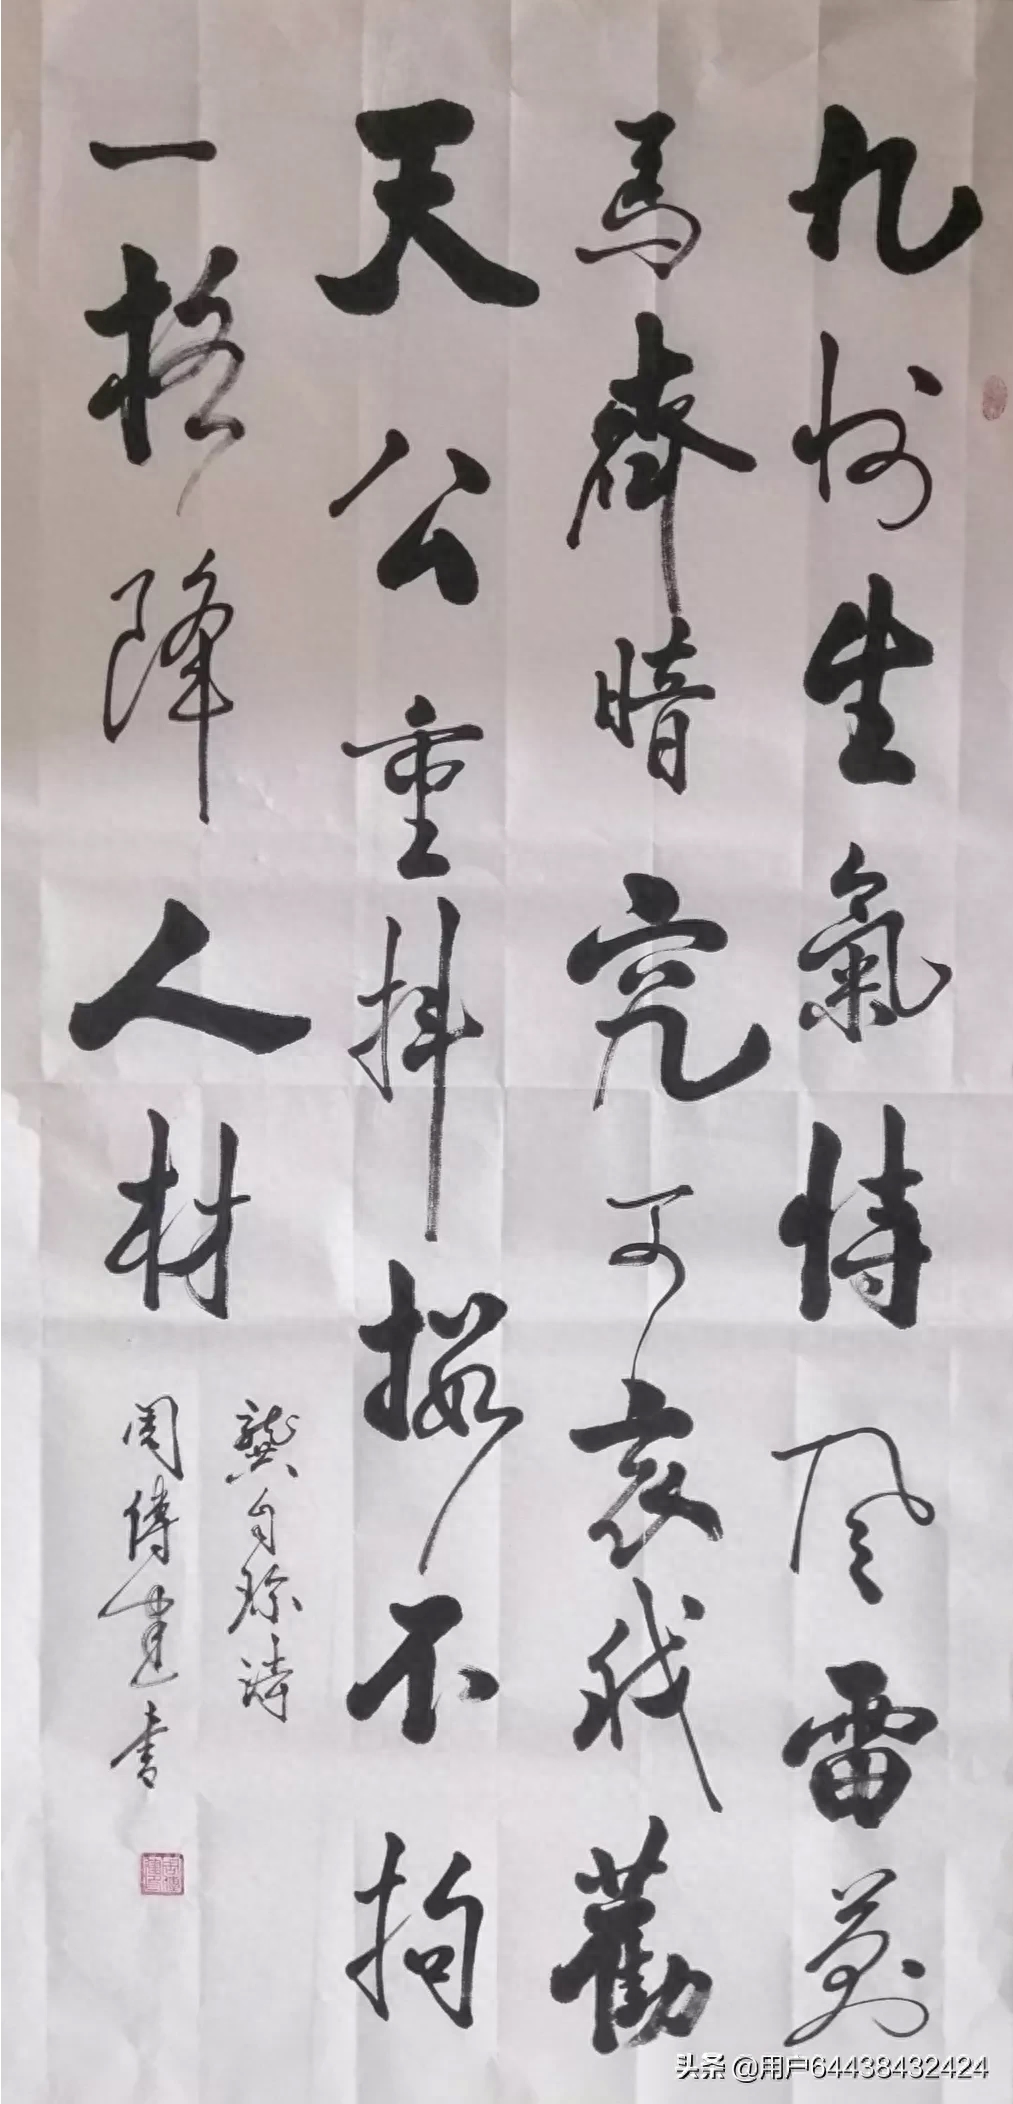 九州生氣恃風雷萬
馬齊暗究可哀我勸
天公重抖擻不拘
一格降人材
龔自珍詩
周傳建書
头条 @用户64438432424